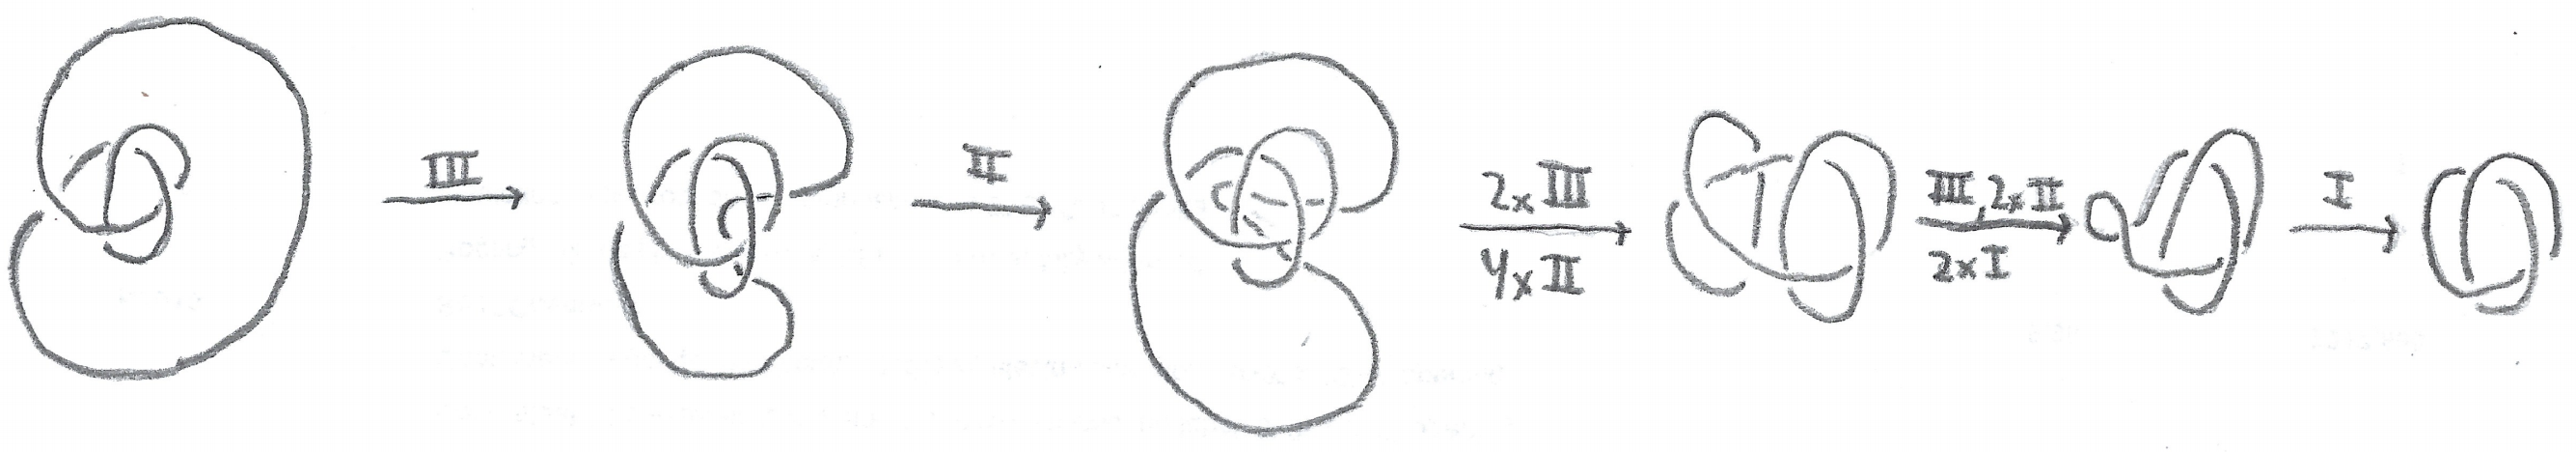 III
II
2xIII
4xII
III, 2xII
2xI
I